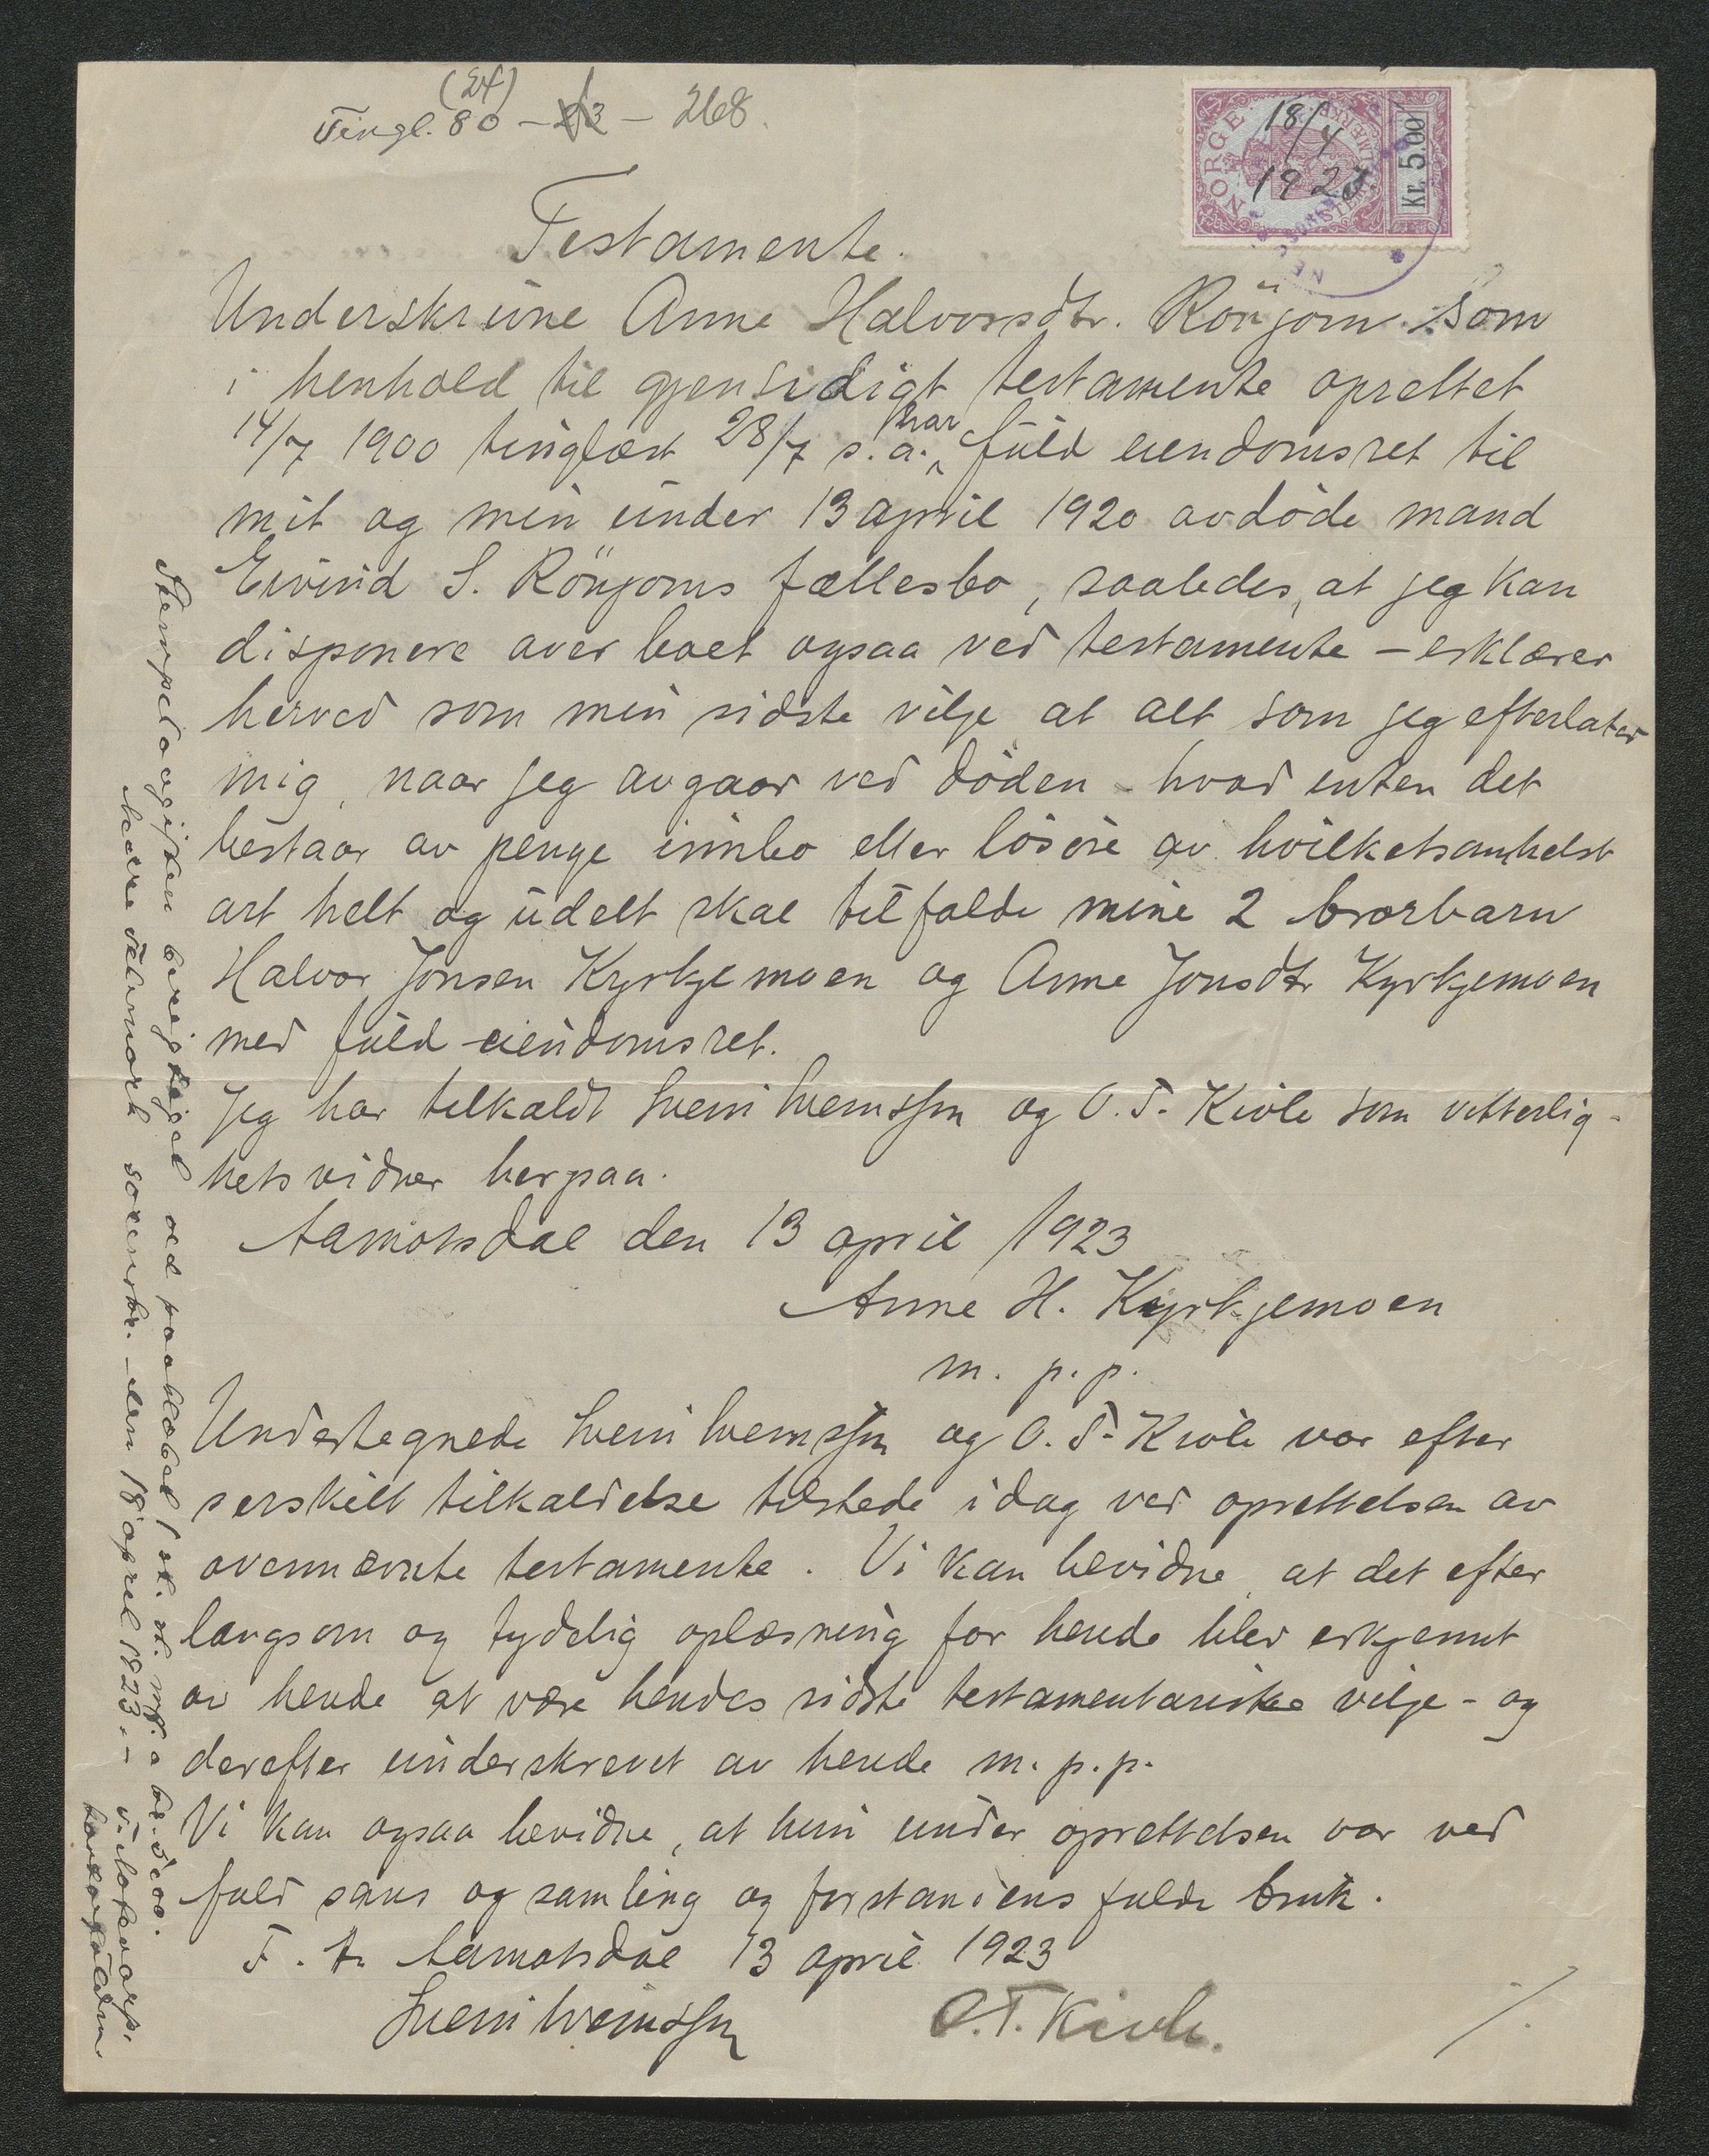 (Ef)
Tingl. 80 - - 268.
NORGE
STEMPELMERKE
Kr. 5.00
18/4
1923
Testamente.
Underskrivne Anne Halvorsdtr. Rönjom som
i henhold til gjensidigt testamente oprettet
14/7 1900 tinglæst 28/7 s.a. har fuld eiendomsret til
mit og min under 13 april 1920 avdøde mand
Eivind S. Rönjoms fællesbo, saaledes, at jeg kan
disponere over boet ogsaa ved testamente - erklærer
herved som min sidste vilje at alt som jeg efterlater
mig, naar jeg avgaar ved døden - hvad enten det
bestaar av penge innbo eller løsøre av hvilketsomhelst
art helt og udelt skal tilfalde mine 2 brorbarn
Halvor Jonsen Kyrkjemoen og Anne Jonsdtr Kyrkjemoen
med fuld eiendomsret.
Jeg har tilkaldt Svein Sveinsson og O. T. Kivle som vitterlig-
hetsvidner herpaa.
Aamotsdal den 13 april 1923
Anne H. Kyrkjemoen
m. p. p.
Undertegnede Svein Sveinsson og O. T. Kivle var efter
serskilt tilkaldelse tilstede idag ved oprettelsen av
ovennævnte testamente. Vi kan bevidne, at det efter
langsom og tydelig oplæsning for hende blev erkjennt
av hende at være hendes sidste testamentariske vilje - og
derefter underskrevet av hende m. p. p.
Vi kan ogsaa bevidne, at hun under oprettelsen var ved
fuld sans og samling og forstandens fulde bruk.
F. t. Aamotsdal 13 april 1923
Svein Sveinsson O. T. Kivle.
Stempelavgiften berigtiget ved paaklæbet 1 st. st. mf. a kr. 5.00.
Nedre Telemark sorenskr. den 18 april 1923. -